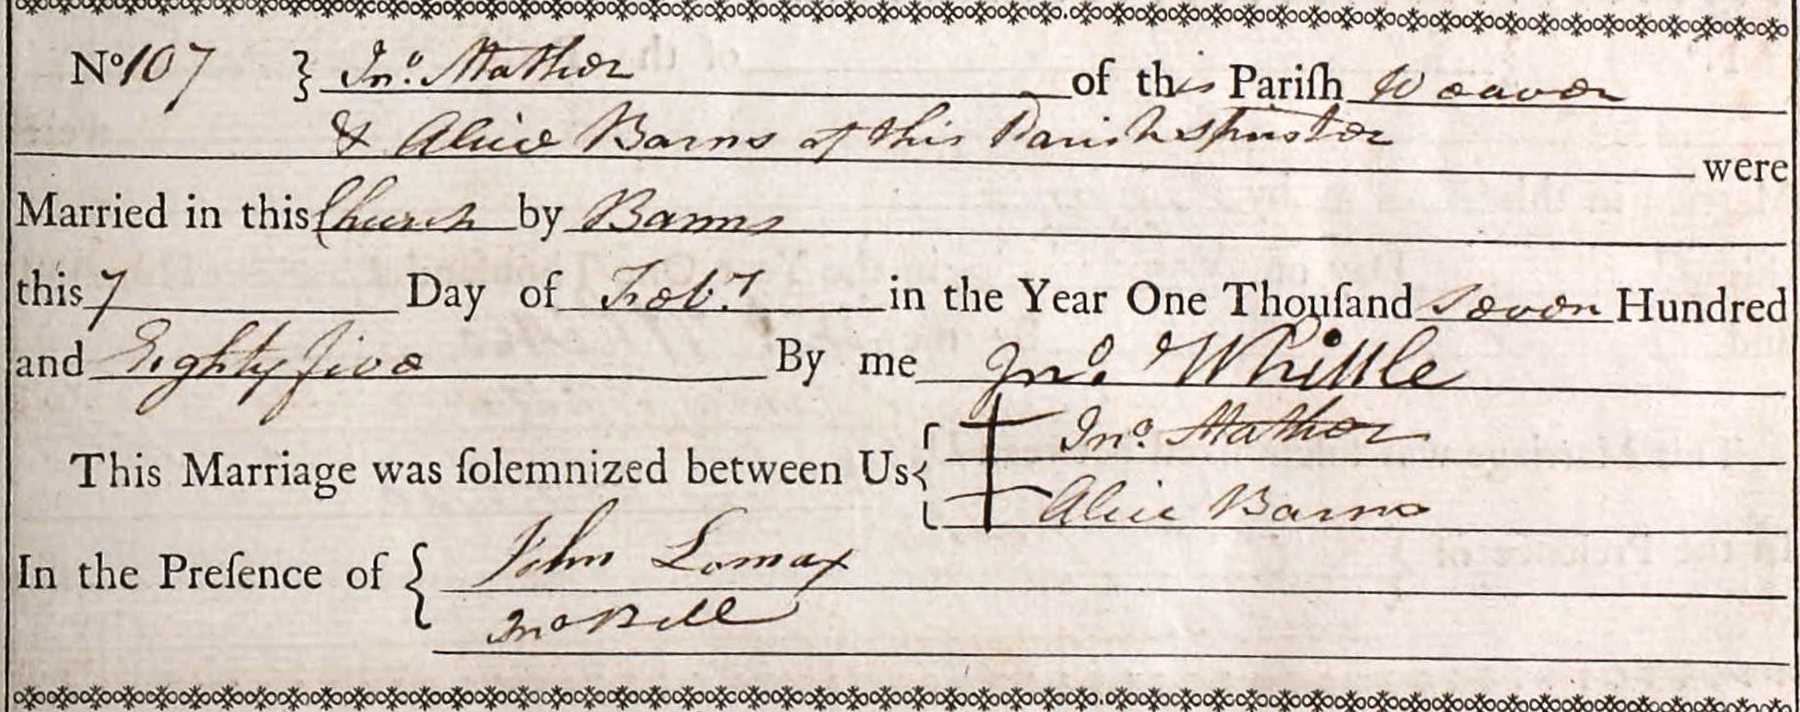 No 107 } Jno. Mather of this Pariſh Weaver
& Alice Barns of this Parish Spinster were
Married in this Church by Banns
this 7 Day of Feby in the Year One Thouſand Seven Hundred
and Eighty five By me Jno. Whittle
This Marriage was ſolemnized between Us { Jno. Mather
Alice Barns
In the Preſence of { John Lomax
Jno Bell